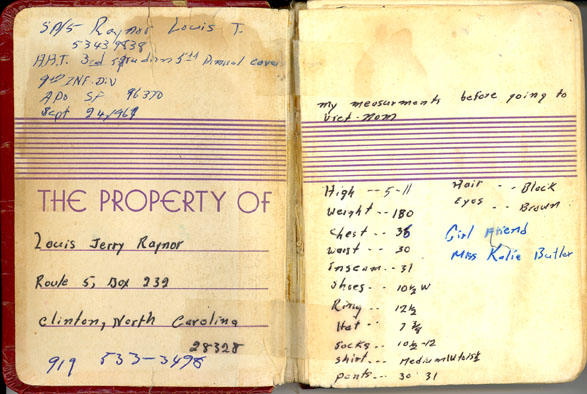 SP/5 Raynor Louis T.
53439838
H.H.T. 3rd Squadron 5th Armical cover
9th INF. Div
APO SF 96370
Sept 24/1969
THE PROPERTY OF
Louis Jerry Raynor
Route 5, Box 239
Clinton, North Carolina
28328
919 533-3498
my measurments before going to
Viet-nom
High -- 5-11
Weight -- 180
Chest -- 36
Waist -- 30
Inseam -- 31
Shoes -- 10½ W
Ring -- 12½
Hat --
Socks -- 10½-12
Shirt -- Medium
Pants --- 30 31
Hair -- Black
Eyes -- Brown
Girl Friend
Miss Katie Butler